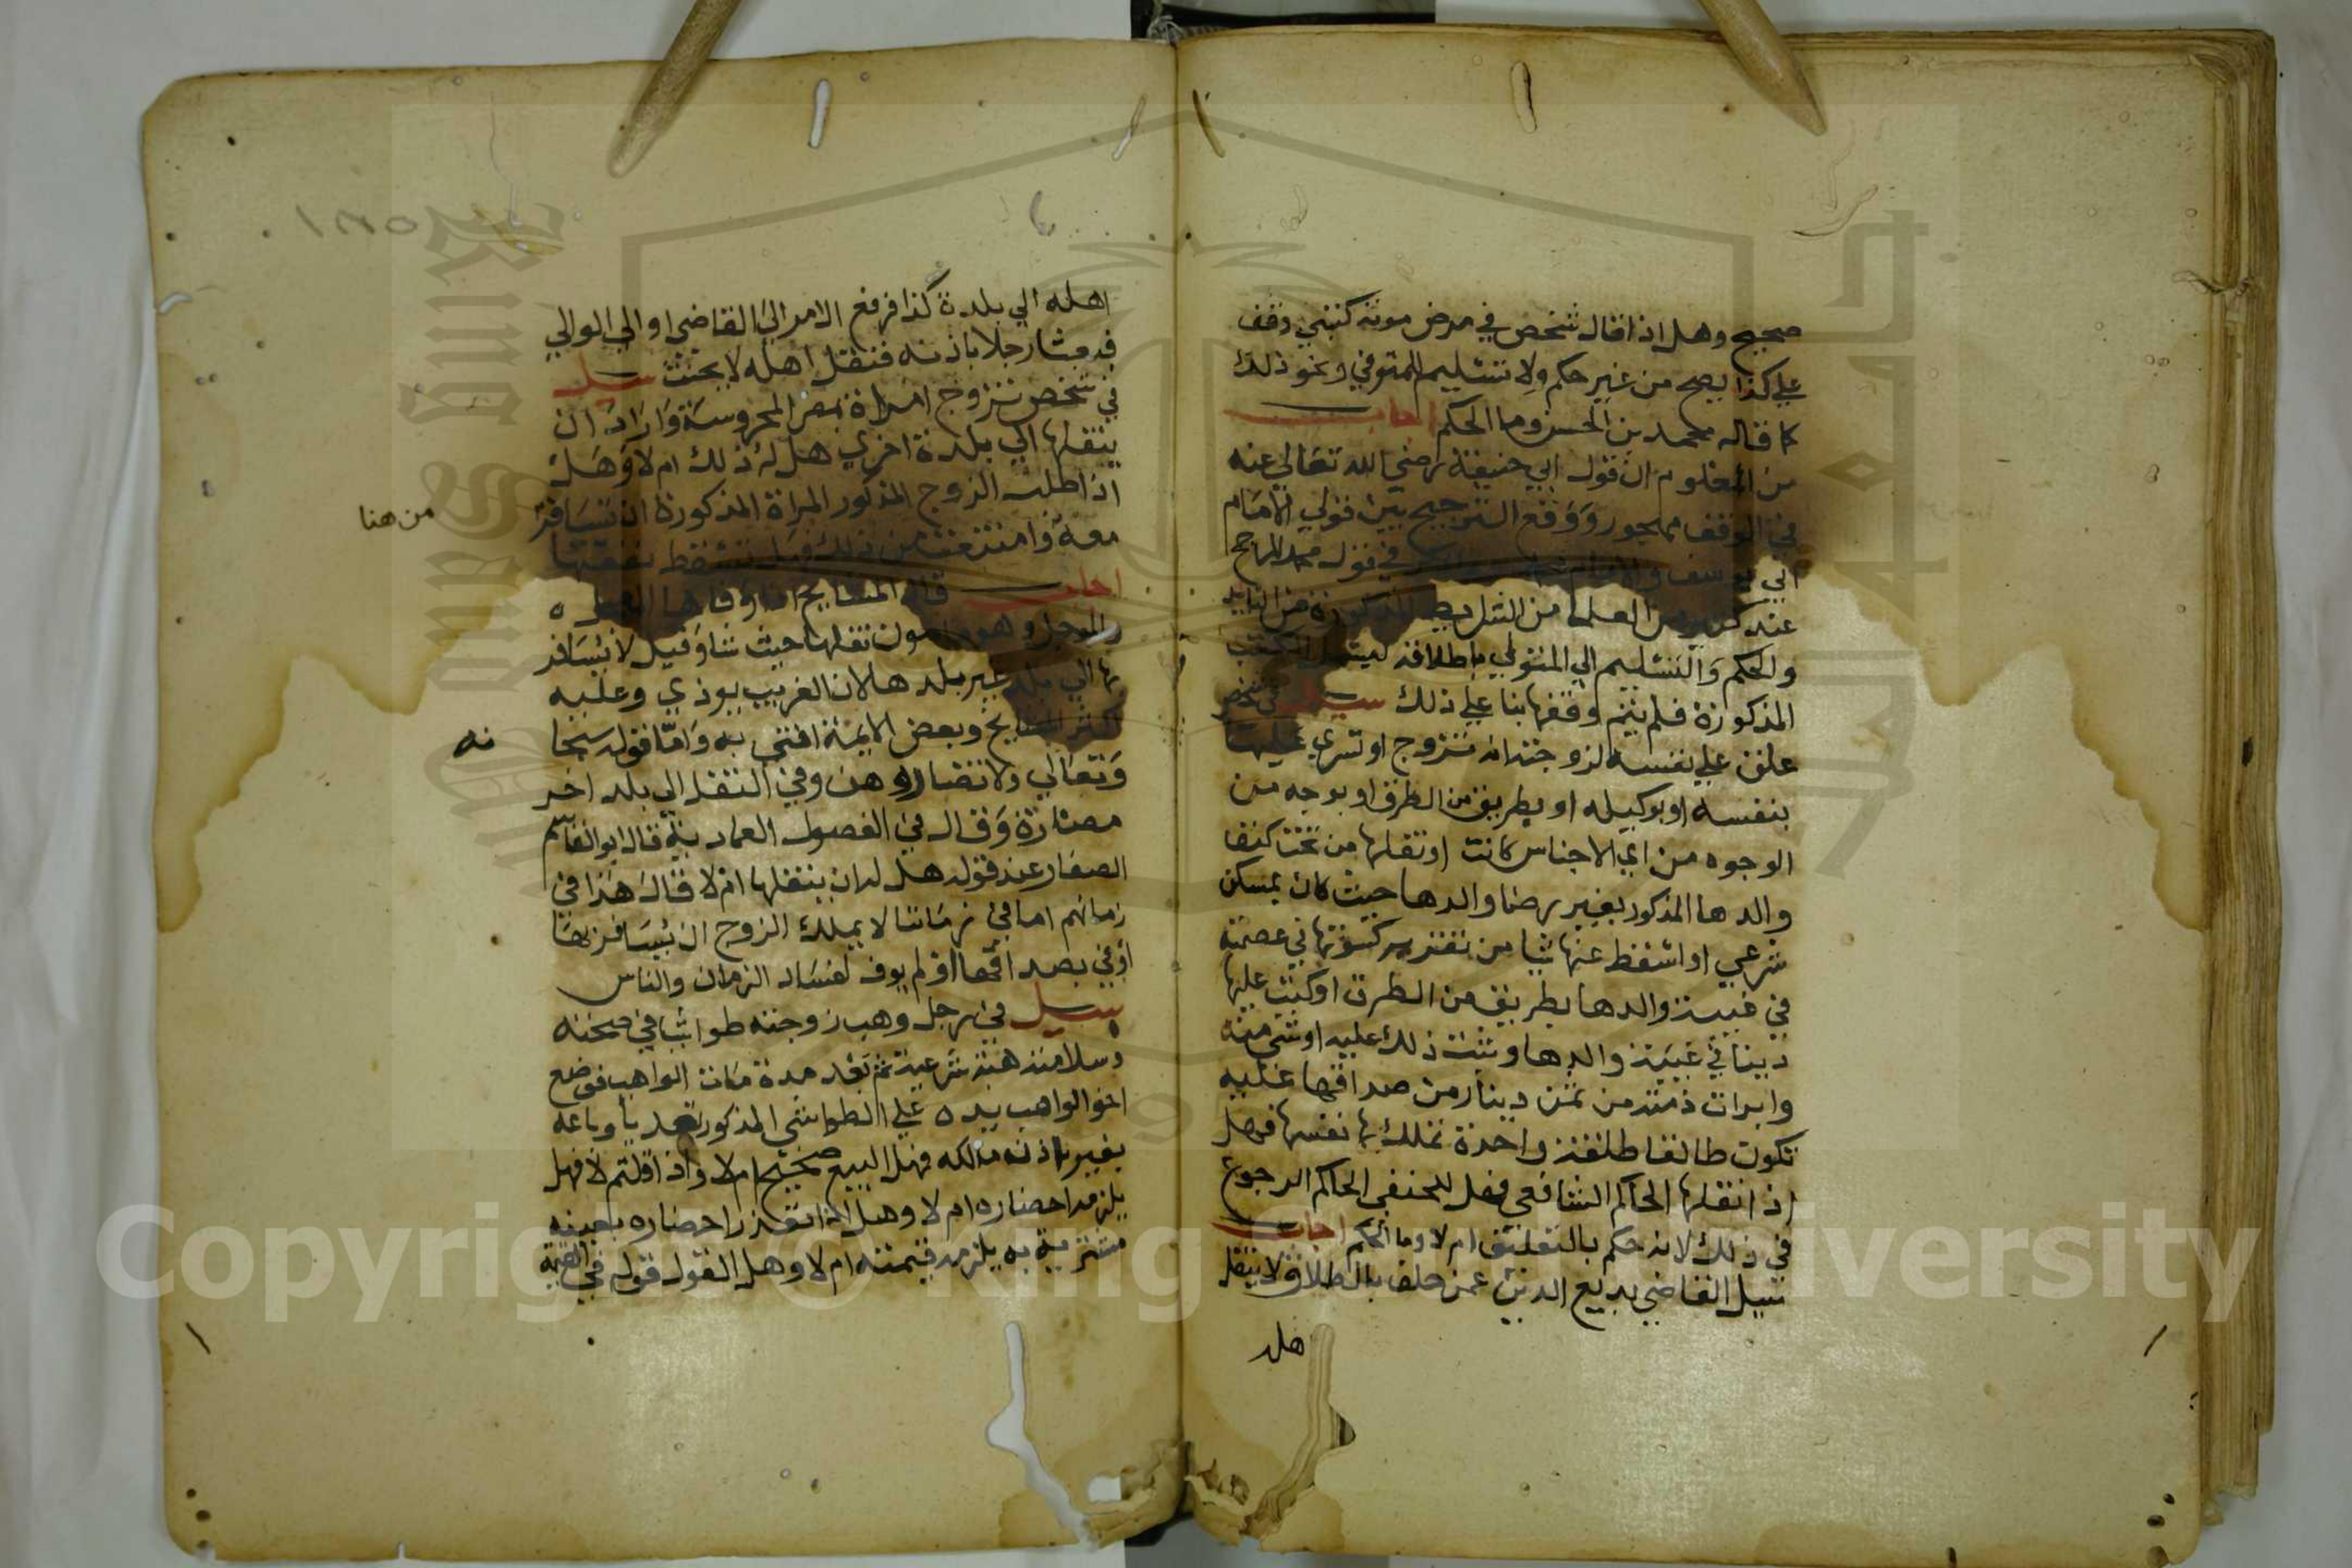 صحيح وهل اذا قال شخص في مرض موته كتبتي وقف
علي كذا يصح من غير حكم ولا تسليم للمتوفي ونحو ذلك
كما قاله محمد بن الحسن وما الحكم اجاب
من المعلوم ان قول ابي حنيفة رضي الله تعالي عنه
في الوقف مهجور ووقع الترجيح بين قولي الامام
ابي يوسف والامام في قول محمد المرجح
عند كثير من العلما من الشرايط المذكورة من التابيد
والحكم والتسليم الي المتولي باطلاقه ليشمل الكتب
المذكورة فلم يتم وقفها بنا علي ذلك سيل في شخص
علق علي نفسه لزوجته انه متي تزوج او تسري عليها
بنفسه او بوكيله او بطريق من الطرق او بوجه من
الوجوه من اي الاجناس كانت او نقلها من تحت كنف
والدها المذكور بغير رضا والدها حيث كان بمسكن
شرعي او اسقط عنها شيا من تقدير كسوتها في عصمته
في غيبة والدها بطريق من الطرق او كتب عليها
دينا في غيبة والدها وثبت ذلك عليه او شي منه
وابرات ذمته من ثمن دينار من صداقها عليه
تكون طالقا طلقة واحدة تملك بها نفسها فهل
اذا نقلها الحاكم الشافعي فهل للحنفي الحاكم الرجوع
في ذلك لانه حكم بالتعليق ام لا وما الحكم اجاب
سيل القاضي بديع الدين عمن حلف بالطلاق لا ينقل
هله
اهله الي بلدة كذا فرفع الامر الي القاضي او الي الوالي
فبعثا رجلا باذنه فنقل اهله لا يحنث سيل
في شخص تزوج امراة بمصر المحروسة واراد ان
ينقلها الي بلدة اخري هل له ذلك ام لا وهل
اذا طلب الزوج المذكور المراة المذكورة ان تسافر
معه وامتنعت من ذلك فهل تسقط نفقتها
اجاب قال المشايخ اذا وفاها المعجل
والموجل وهو مامون نقلها حيث شا وقيل لا يسافر
بها الي بلد غير بلدها لان الغريب يوذي وعليه
اكثر المشايخ وبعض الايمة افتي به واما قوله سبحانه
وتعالي ولا تضاروهن وفي النقل الي بلد اخر
مضارة وقال في الفصول العمادية قال ابو القاسم
الصفار عند قوله هل له ان ينقلها ام لا قال هذا في
زمانهم اما في زماننا لا يملك الزوج ان يسافر بها
اوفي بصداقها او لم يوف لفساد الزمان والناس
سيل في رجل وهب زوجته طواشيا في صحته
وسلامته هبة شرعية ثم بعد مدة مات الواهب فوضع
اخو الواهب يده علي الطواشي المذكور تعديا وباعه
بغير اذن مالكه فهل البيع صحيح ام لا واذا قلتم لا فهل
يلزمه احضاره ام لا وهل اذا تعذر احضاره بعينه
مشتريه به يلزمه قيمته ام لا وهل القول قوله في القيمة
من هنا